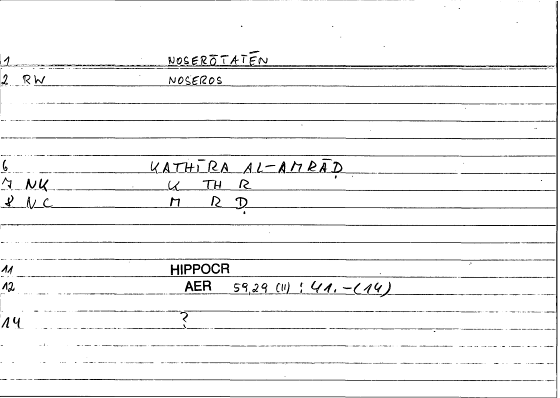 1 NOSERŌTATĒN
2 RW NOSEROS
6 KATHĪRA AL-AMRĀḌ
7 NK K TH R
8 NC M R Ḍ
11 HIPPOCR
12 AER 59,29 (11) : 41.-(14)
14 ?